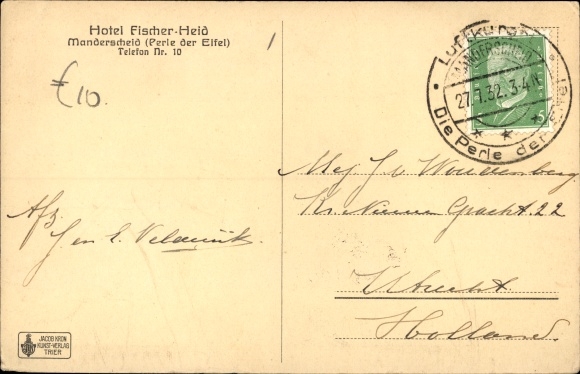 Hotel Fischer-Heid
Manderscheid (Perle der Eifel)
Telefon Nr. 10
€10.
Luftkurort
MANDERSCHEID
27.7.32. 3-4 N
Die Perle der Eifel
5
Mej. J. v. Woudenberg
Kr. Nieuwe Gracht 22
Utrecht
Holland.
Afz.
JACOB KRON
KUNST-VERLAG
TRIER